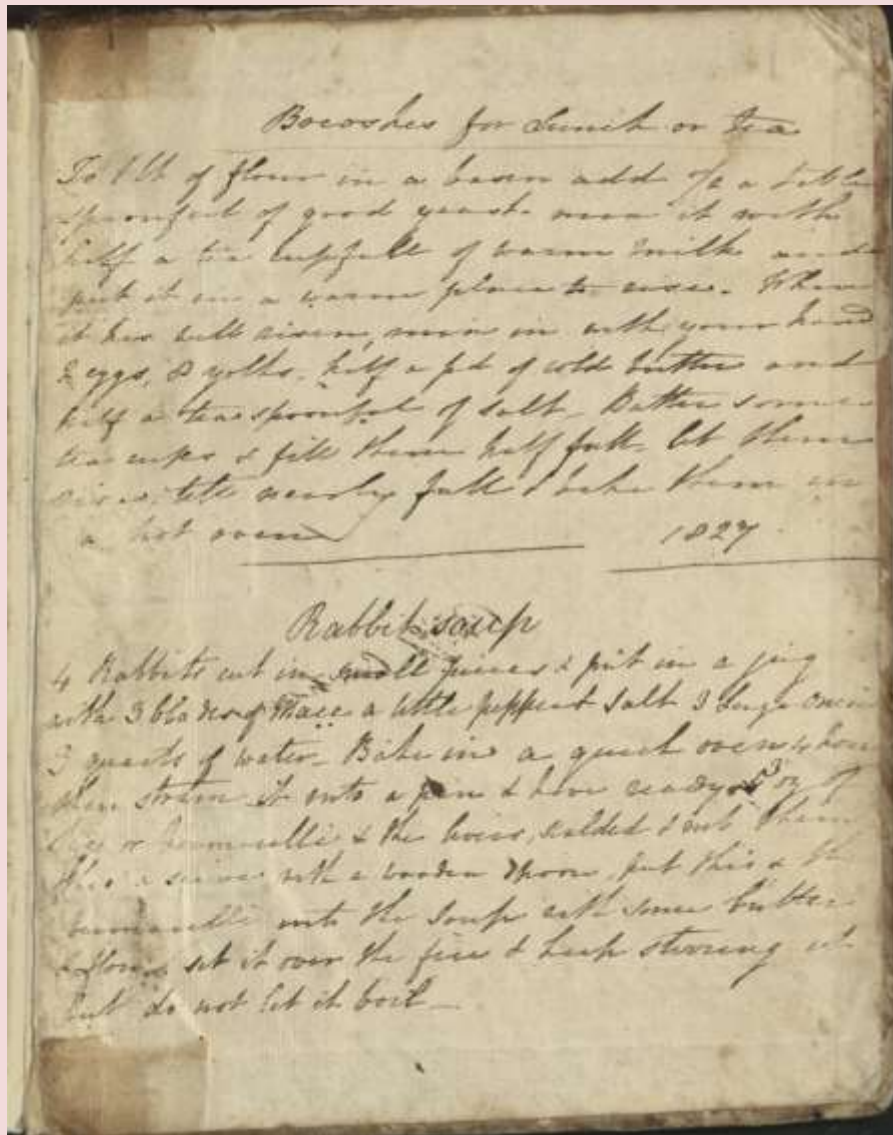 Bocoshes for Lunch or tea
To 1 lb of flour in a basin add a table
spoonful of good yeast mix it with
half a tea cupfull of warm milk and
put it in a warm place to rise. When
it has well risen, mix in with your hand
2 eggs, 2 yolks, half a pd of cold butter and
half a teaspoonful of salt. Butter some
tea cups & fill them half full let them
rise till nearly full & bake them in
a hot oven
1827
Rabbit soup
4 Rabbits cut in small pieces & put in a jug
with 3 blades of Mace a little pepper & salt 3 large onions
3 quarts of water. Bake in a quick oven 4 hours
then strain it into a pan & have ready 3 oz of
or vermicelli & the livers, scalded & rub them
thro' a seive with a wooden spoon, put this & the
vermicelli into the soup with some butter
& flour set it over the fire & keep stirring it
but do not let it boil